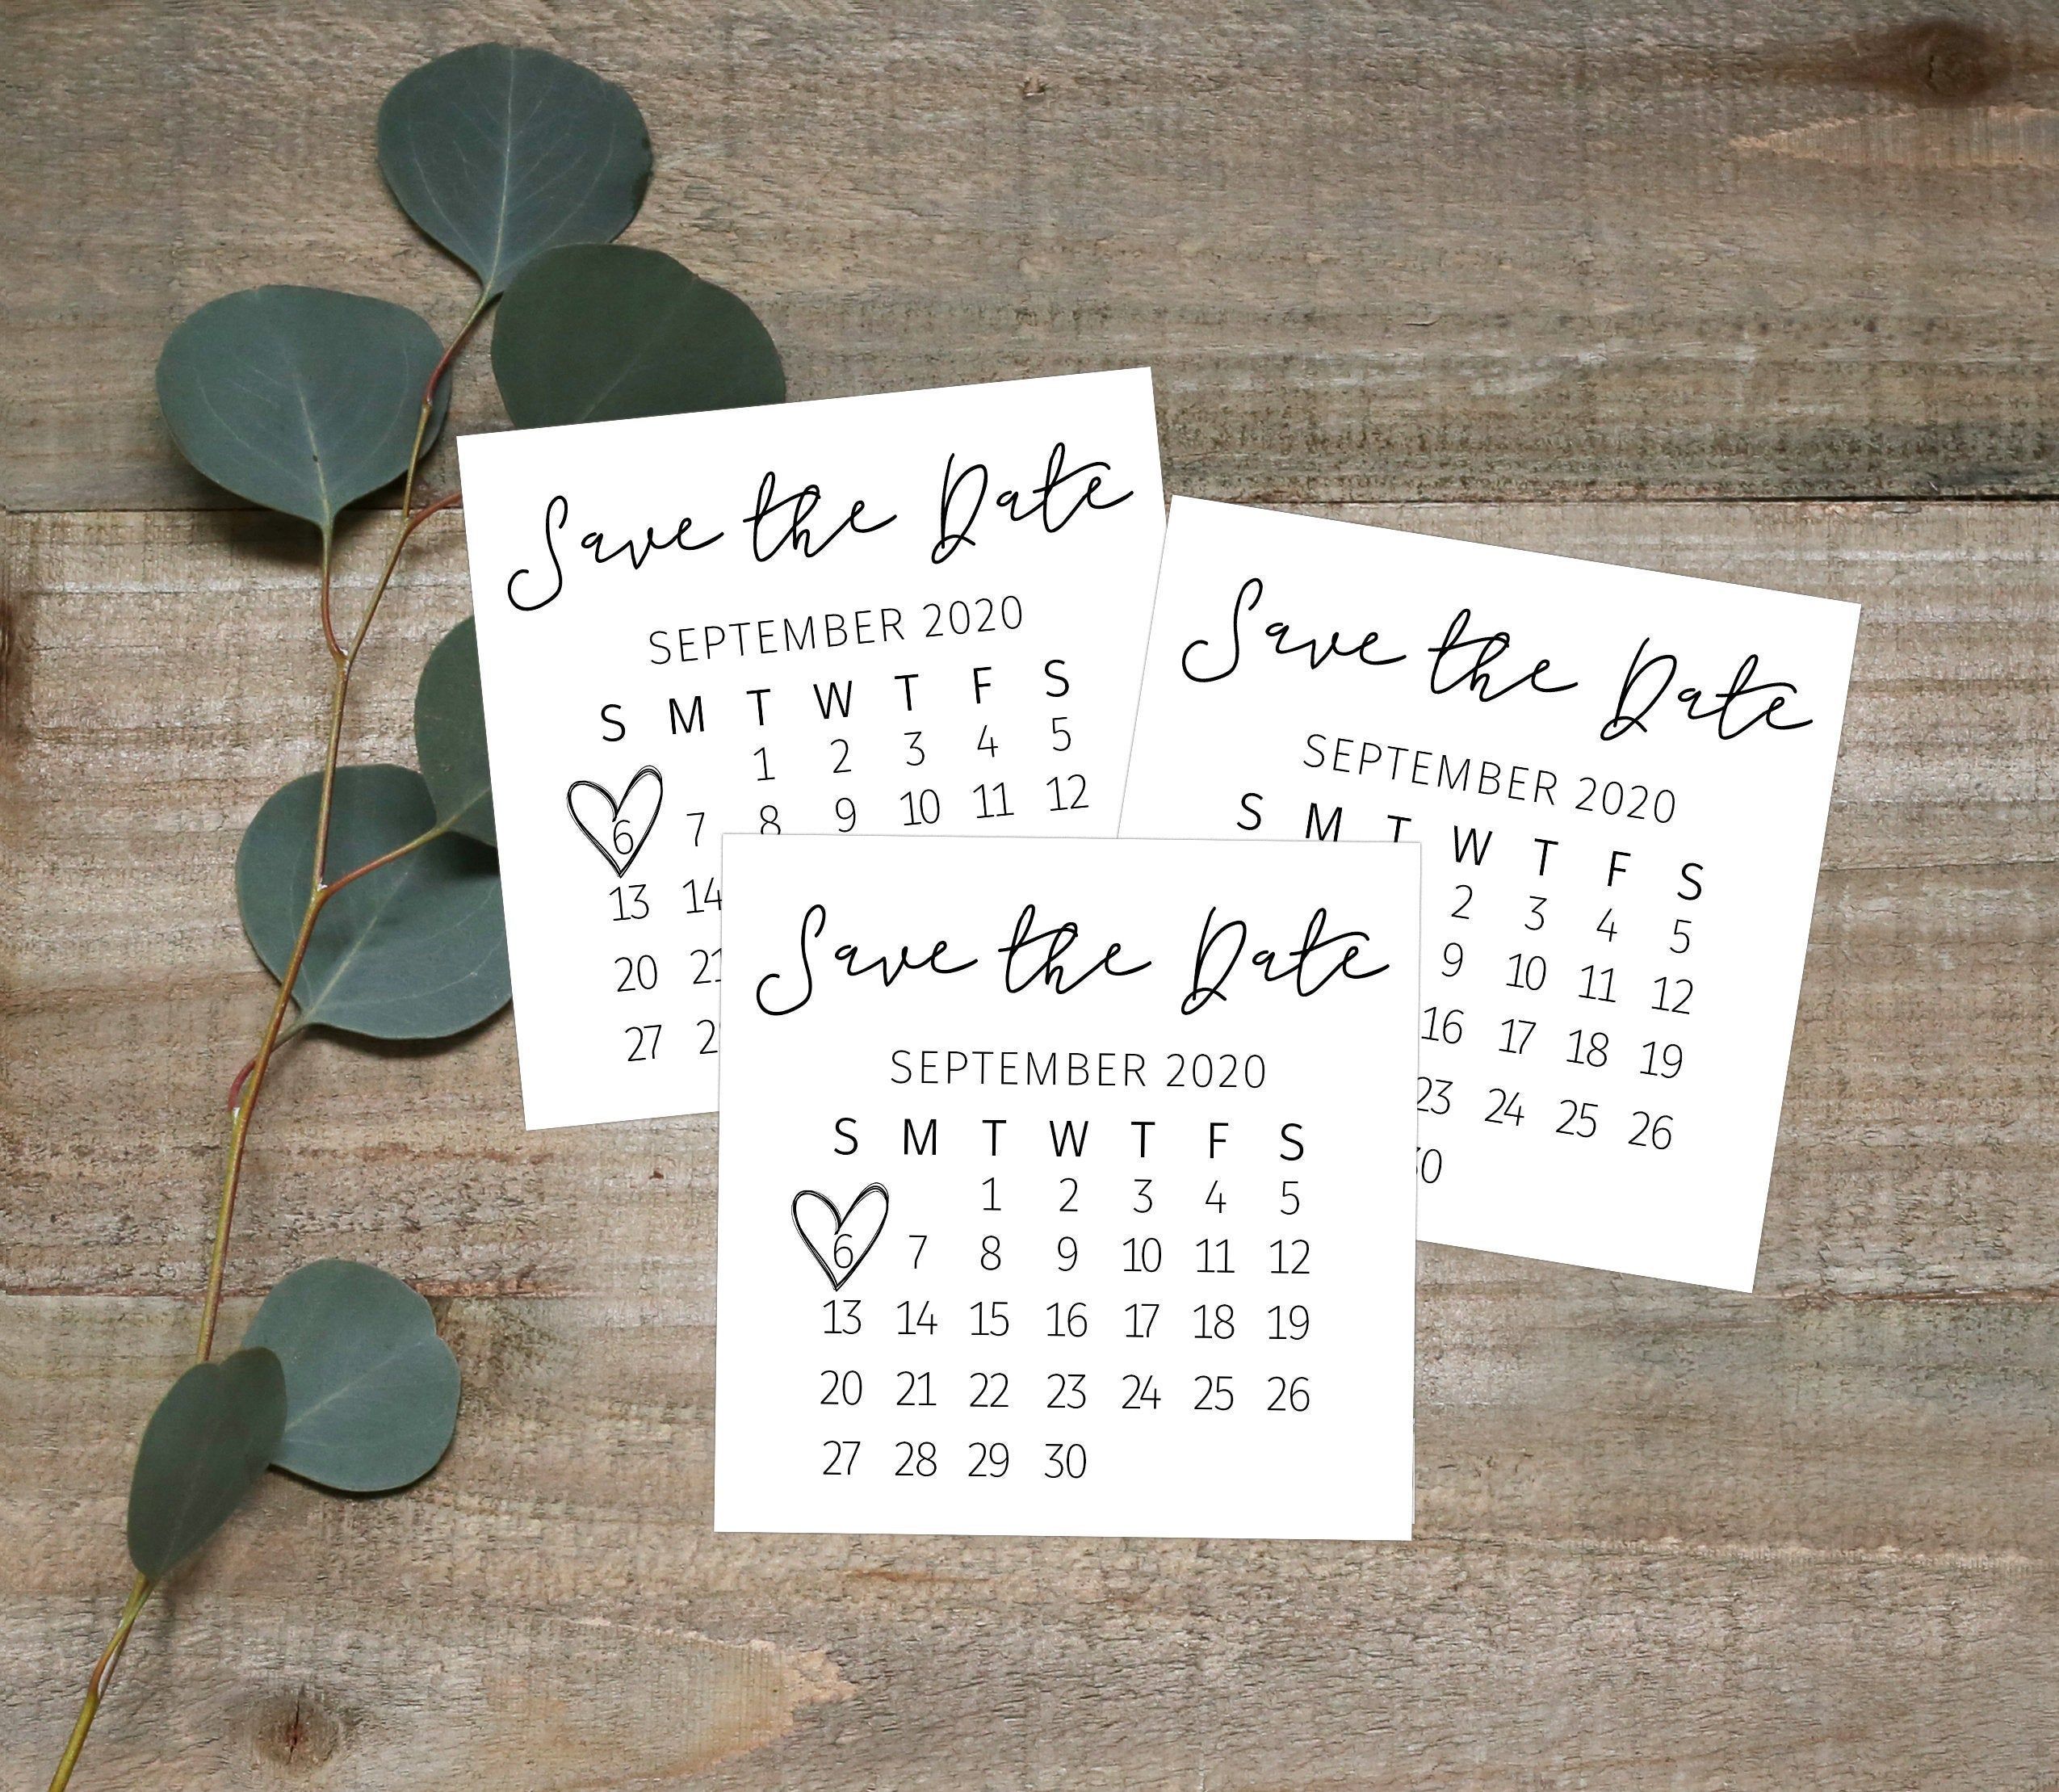 Save the Date
SEPTEMBER 2020
S M T W T F S
1 2 3 4 5
6 7 8 9 10 11 12
13 14
20 21
27
Save the Date
SEPTEMBER 2020
S M T W T F S
2 3 4 5
9 10 11 12
16 17 18 19
23 24 25 26
30
Save the Date
SEPTEMBER 2020
S M T W T F S
1 2 3 4 5
6 7 8 9 10 11 12
13 14 15 16 17 18 19
20 21 22 23 24 25 26
27 28 29 30